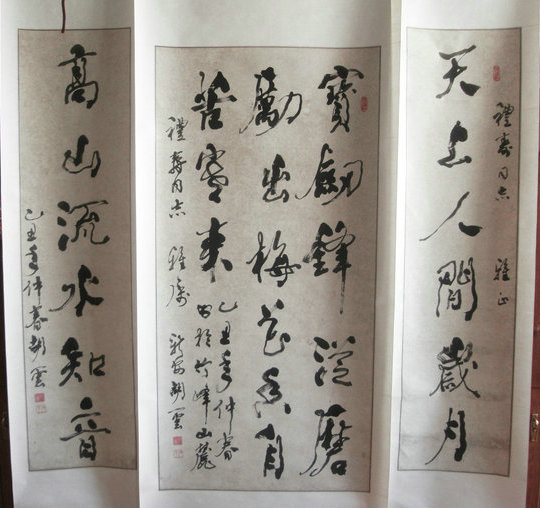 天上人間歲月
禮壽同志 雅正
寶劍鋒從磨
勵出梅花香自
苦寒來
禮壽同志 雅屬
乙丑年仲春
書於竹峰山麓
胡雲
高山流水知音
乙丑年仲春胡雲